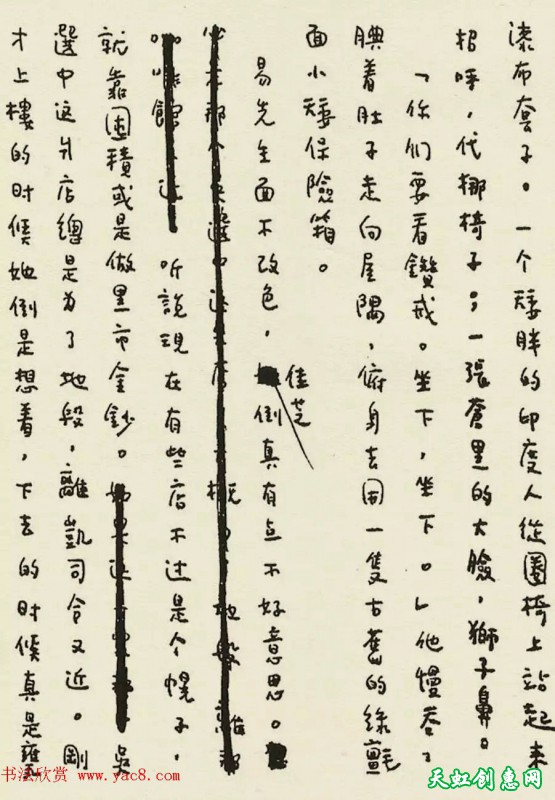 漆布套子。一个矮胖的印度人從圈椅上站起來
招呼，代挪椅子；一張蒼黑的大臉，獅子鼻。
「你们要看鑽戒。坐下，坐下。」他慢吞吞
腆着肚子走向屋隅，俯身去開一隻古舊的綠氈
面小矮保險箱。
易先生面不改色，佳芝倒真有点不好意思。
听說現在有些店不过是个幌子，
就靠囤積或是做黑市金鈔。吳
選中这爿店總是为了地段，離凱司令又近。剛
才上樓的时候她倒是想着，下去的时候真是甕
书法欣赏 www.yac8.com
天虹创意网